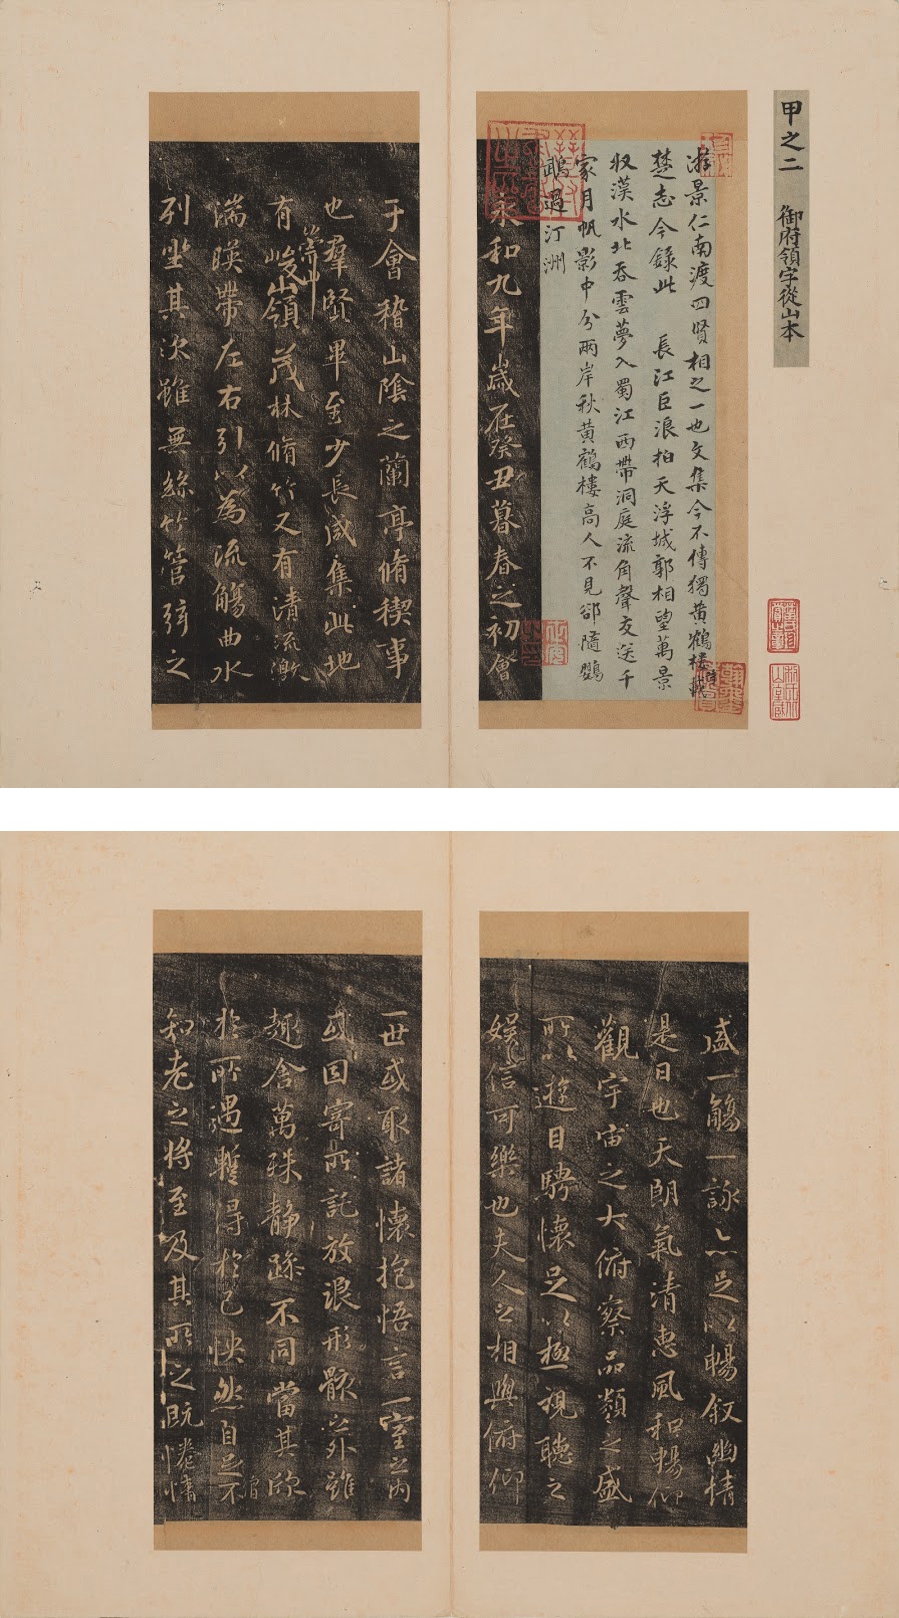 甲之二　御府領字從山本
游景仁南渡四賢相之一也文集今不傳獨黃鶴樓詩載
楚志今錄此　長江巨浪拍天浮城郭相望萬景
收漢水北吞雲夢入蜀江西帶洞庭流角聲交送千
家月帆影中分兩岸秋黃鶴樓高人不見郤隨鸚
鵡過汀洲
永和九年歲在癸丑暮春之初會
于會稽山陰之蘭亭脩稧事
也羣賢畢至少長咸集此地
有崇山峻領茂林脩竹又有清流激
湍暎帶左右引以為流觴曲水
列坐其次雖無絲竹管弦之
盛一觴一詠亦足以暢叙幽情
是日也天朗氣清惠風和暢仰
觀宇宙之大俯察品類之盛
所以遊目騁懷足以極視聽之
娛信可樂也夫人之相與俯仰
一世或取諸懷抱悟言一室之內
或因寄所託放浪形骸之外雖
趣舍萬殊靜躁不同當其欣
於所遇暫得於己怏然自足不
知老之將至及其所之既惓情